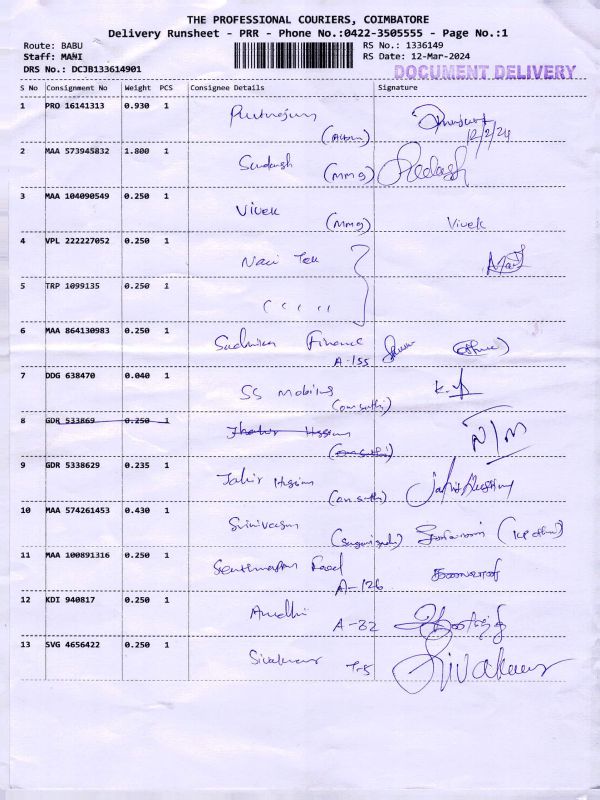 THE PROFESSIONAL COURIERS, COIMBATORE
Delivery Runsheet - PRR - Phone No.:0422-3505555 - Page No.:1
Route: BABU RS No.: 1336149
Staff: MANI RS Date: 12-Mar-2024
DRS No.: DCJB133614901 DOCUMENT DELIVERY
S No Consignment No Weight PCS Consignee Details Signature
1 PRO 16141313 0.930 1
12/2/24
2 MAA 573945832 1.800 1 Sudarsh
(MMG)
3 MAA 104090549 0.250 1 Vivek Vivek
(MMG)
4 VPL 222227052 0.250 1 Navi Tek
5 TRP 1099135 0.250 1
6 MAA 864130983 0.250 1 Finance
A-155
7 DDG 638470 0.040 1 SS Mobiles
(om sathi)
8 GDR 533869 0.250 1 N/M
9 GDR 5338629 0.235 1 Jahir
(om sathi)
10 MAA 574261453 0.430 1 Srinivasan
11 MAA 100891316 0.250 1
A-126
12 KDI 940817 0.250 1 A-82
13 SVG 4656422 0.250 1 Sivakumar Sivakumar